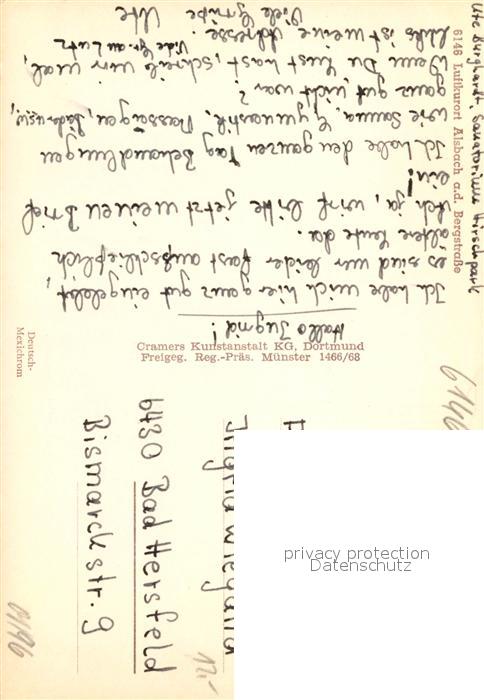 Ute Burghardt, Sanatorium Hirschpark
6146 Luftkurort Alsbach a.d. Bergstraße
Hallo Ingrid!
Ich habe mich hier ganz gut eingelebt,
es sind nur leider fast außschließlich
ältere Leute da.
Ach ja, wirf bitte jetzt meinen Brief
ein!
Ich habe den ganzen Tag Behandlungen
wie Sauna, Gymnastik, Massagen, Bäder usw,
ganz gut, nicht war?
Wenn Du Lust hast, schreib mir mal,
links ist meine Adresse.
Viele Grüße Ute
Cramers Kunstanstalt KG, Dortmund
Freigeg. Reg.-Präs. Münster 1466/68
Deutsch-
Mexichrom
Ingrid Wiegand
6430 Bad Hersfeld
Bismarckstr. 9
6146
12,-
privacy protection
Datenschutz